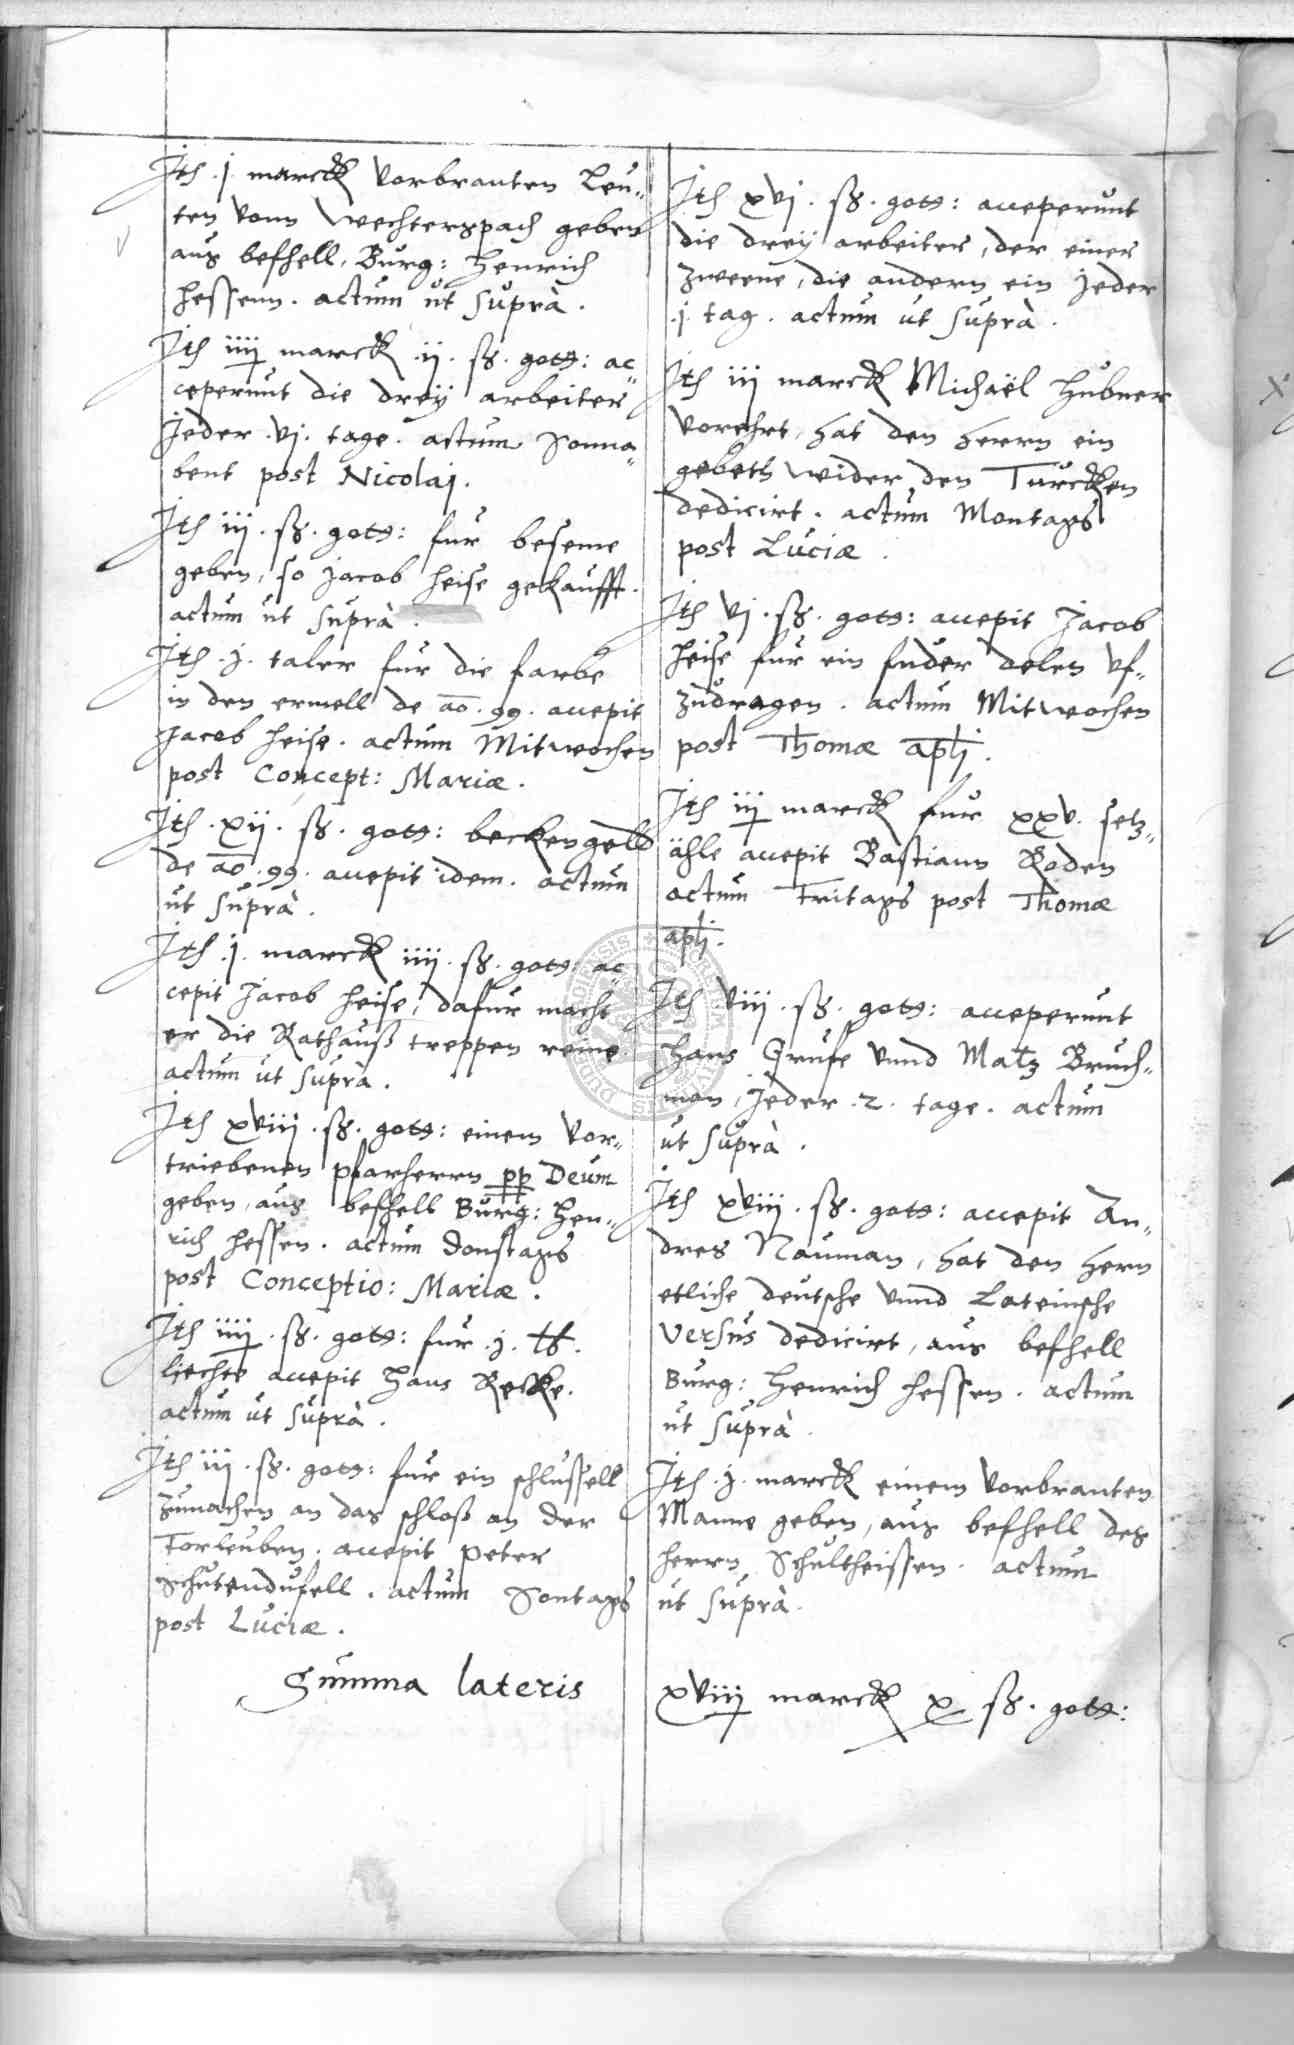 Ite .j. marck vorbranten Leu-
ten vonn Wechterspach geben
aus befhell, Burg: Henrich
Hessenn. actum ut suprà.
Ite iiij marck .ij. ß. gott: ac-
ceperunt die drey arbeiter
Jeder .vj. tage. actum Sonna-
bent post Nicolaj.
Ite iij. ß. gott: fur beseme
geben, so Jacob Heise gekaufft.
actum ut suprà.
Ite .j. taler fur die farbe
in den ermell de ao. 99. accepit
Jacob Heise. actum Mitwochen
post Concept: Mariæ.
Ite .xij. ß. gott: beckengeld
de ao. 99. accepit idem. actum
ut suprà.
Ite .j. marck iiij. ß. gott: ac-
cepit Jacob Heise, dafur macht
er die Rathauß treppen reine
actum ut suprà.
Ite xviij. ß. gott: einem vor-
triebenen pfarherrn pp Deum
geben, aus befhell Burg: Hen-
rich Hessen. actum Donstags
post Conceptio: Mariæ.
Ite iiij. ß. gott: fur .j. lb.
liechte accepit Hans Recke.
actum ut suprà.
Ite iij. ß. gott: fur ein schlussell
zumachen an das schloß an der
Torleuben. accepit Peter
Schutendufell. actum Sontags
post Luciæ.
Summa lateris
Ite xvj. ß. gott: acceperunt
die drey arbeiter, der einer
zweene, die andern ein Jeder
.j. tag. actum ut suprà.
Ite iij marck Michaël Hubner
vorehrt, hat den Herrn ein
gebeth wider den Turcken
dedicirt. actum Montags
post Luciæ.
Ite vj. ß. gott: accepit Jacob
Heise fur ein fuder delen uf-
zudragen. actum Mitwochen
post Thomæ aplj.
Ite iij marck fur xxv. setz-
ähle accepit Bastiann Roden
actum Fritags post Thomæ
aplj.
Ite viij. ß. gott: acceperunt
Hans Grufe vnnd Matz Bruch-
man, Jeder .2. tage. actum
ut suprà.
Ite xviij. ß. gott: accepit An-
dres Nauman, hat den Hern
etliche deutsche vnnd Lateinsche
Versus dedicirt, aus befhell
Burg: Henrich Hessen. actum
ut suprà.
Ite .j. marck einem vorbranten
Manne geben, aus befhell des
Herrn Schultheissen. actum
ut suprà.
xviij marck x ß. gott: